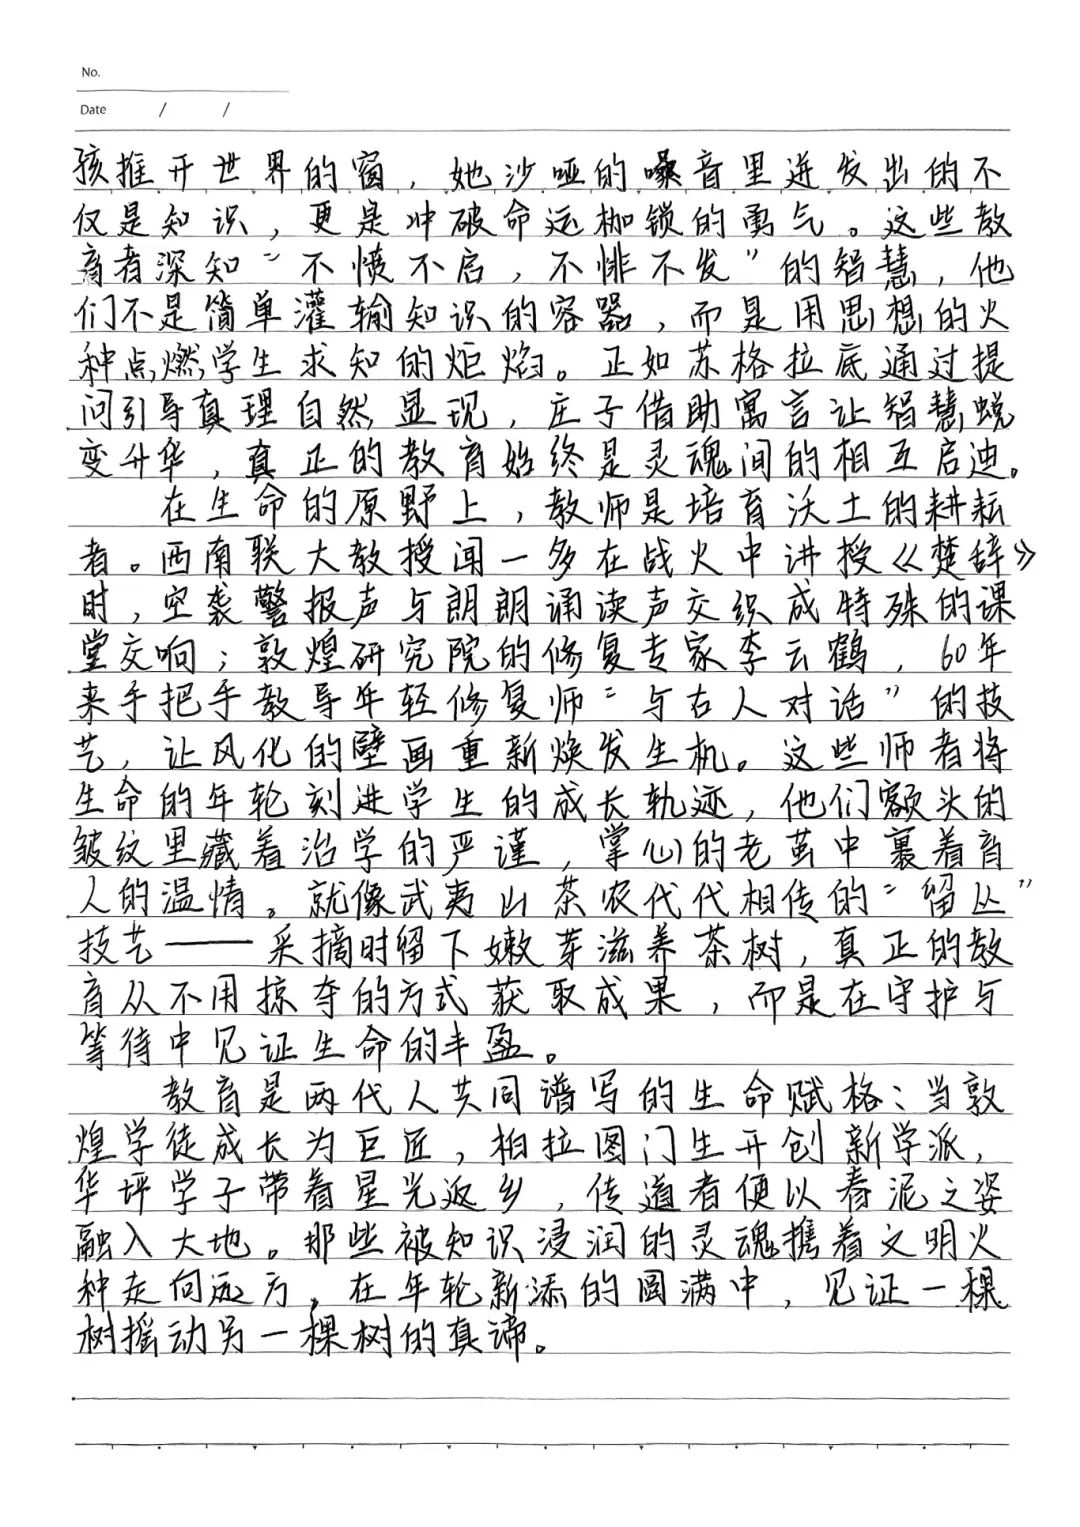 No.
Date / /
孩推开世界的窗，她沙哑的嗓音里迸发出的不
仅是知识，更是冲破命运枷锁的勇气。这些教
育者深知“不愤不启，不悱不发”的智慧，他
们不是简单灌输知识的容器，而是用思想的火
种点燃学生求知的炬焰。正如苏格拉底通过提
问引导真理自然显现，庄子借助寓言让智慧蜕
变升华，真正的教育始终是灵魂间的相互启迪。
在生命的原野上，教师是培育沃土的耕耘
者。西南联大教授闻一多在战火中讲授《楚辞》
时，空袭警报声与朗朗诵读声交织成特殊的课
堂交响；敦煌研究院的修复专家李云鹤，60年
来手把手教导年轻修复师“与古人对话”的技
艺，让风化的壁画重新焕发生机。这些师者将
生命的年轮刻进学生的成长轨迹，他们额头的
皱纹里藏着治学的严谨，掌心的老茧中裹着育
人的温情。就像武夷山茶农代代相传的“留丛”
技艺——采摘时留下嫩芽滋养茶树，真正的教
育从不用掠夺的方式获取成果，而是在守护与
等待中见证生命的丰盈。
教育是两代人共同谱写的生命赋格：当敦
煌学徒成长为巨匠，柏拉图门生开创新学派，
华坪学子带着星光返乡，传道者便以春泥之姿
融入大地。那些被知识浸润的灵魂携着文明火
种走向远方，在年轮新添的圆满中，见证一棵
树摇动另一棵树的真谛。